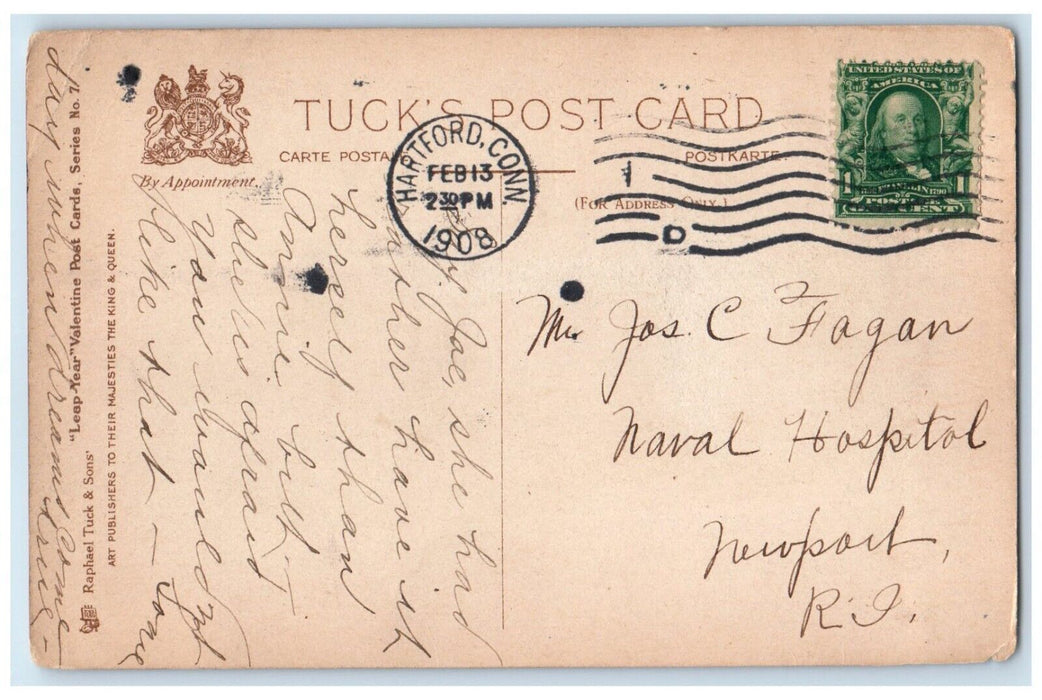 TUCK'S POST CARD
CARTE POSTALE POSTKARTE.
(FOR ADDRESS ONLY.)
By Appointment.
HARTFORD, CONN
FEB 13
2 30 PM
1908
1
D
UNITED STATES OF
AMERICA
FRANKLIN
POSTAGE
1 ONE CENT 1
Mr Jos. C Fagan
Naval Hospital
Newport,
R.I.
Joe, she had
rather have it
herself than
Annie but
she is afraid
you wouldn't
like that — Jone
day when dreams come
true —
"Leap-Year" Valentine Post Cards, Series No. 7
Raphael Tuck & Sons'
ART PUBLISHERS TO THEIR MAJESTIES THE KING & QUEEN.